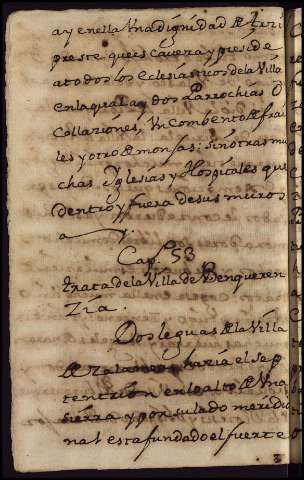 ay en ella Una dignidad de Arci
preste que es cavera y preside
a todos los eclesiasticos de la Villa
en la qual ay dos Parrochias o
Collaziones, Un Combento de frai
les y otro de monjas; sin otras mu
chas Yglesias y Hospitales que
dentro y fuera de sus muros
ay.
Cap.º 53
trata de la Villa de Benqueren
zia.
Dos leguas de la Villa
de Zalamea haria el sep
tentrion en lo alto de Una
sierra y por su lado meridio
nal esta fundado el fuerte